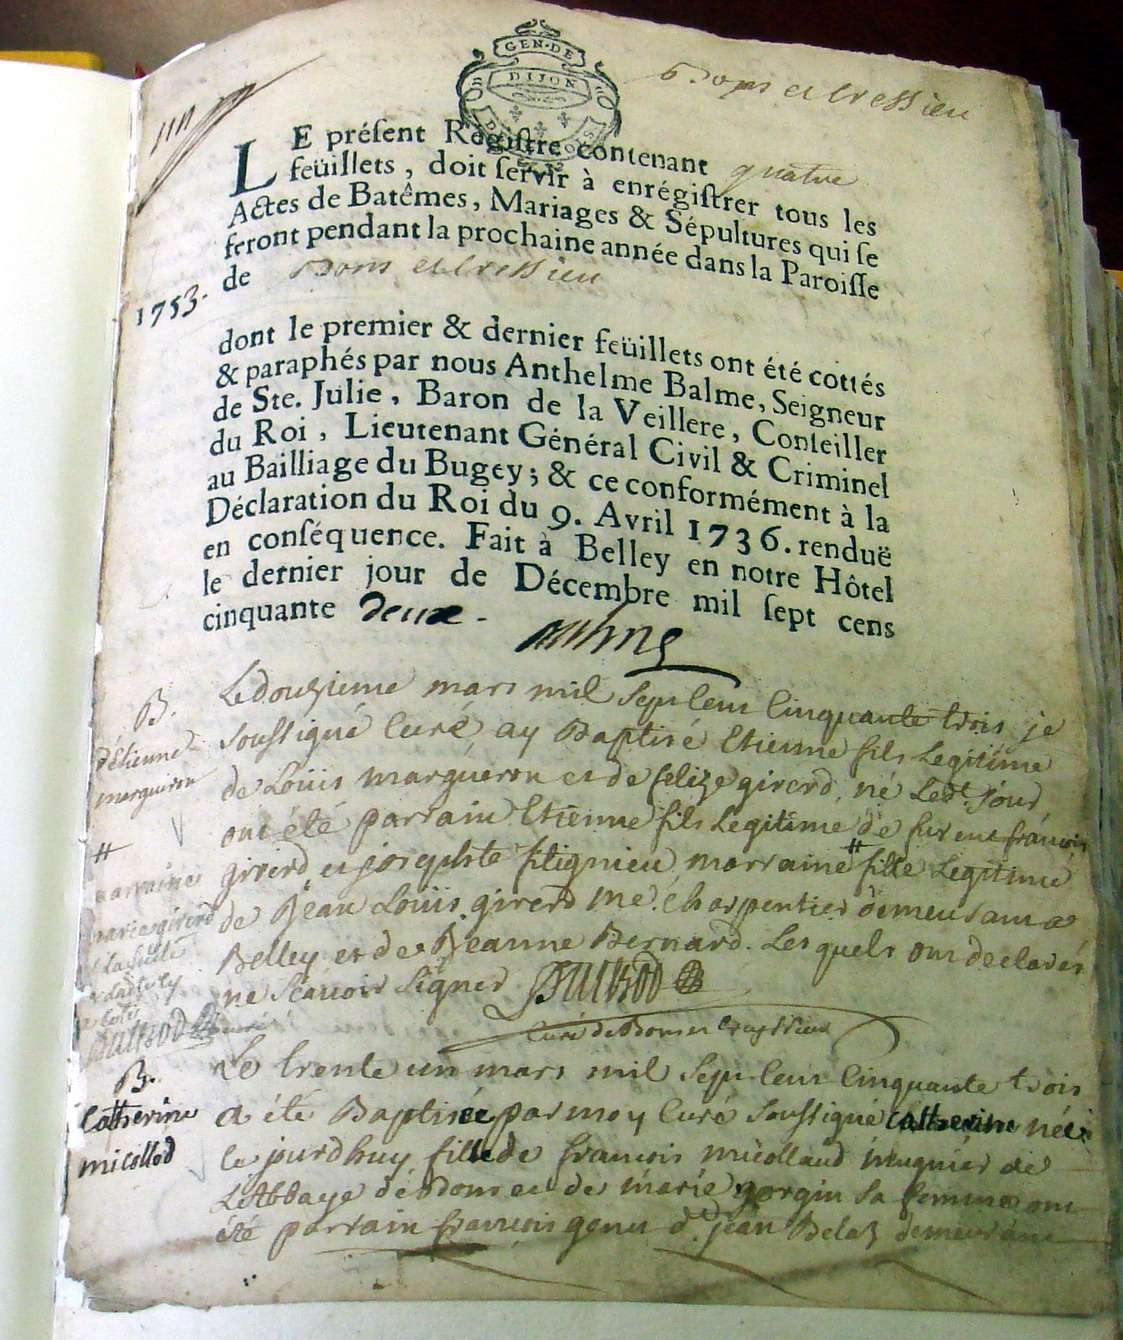 GEN. DE
DIJON
Bons et Cressieu
LE présent Registre contenant quatre
feüillets, doit servir à enrégistrer tous les
Actes de Batêmes, Mariages & Sépultures qui se
feront pendant la prochaine année dans la Paroisse
de Bons et Cressieu
1753.
dont le premier & dernier feüillets ont été cottés
& paraphés par nous Anthelme Balme, Seigneur
de Ste. Julie, Baron de la Veillere, Conseiller
du Roi, Lieutenant Général Civil & Criminel
au Bailliage du Bugey; & ce conformément à la
Déclaration du Roi du 9. Avril 1736. renduë
en conséquence. Fait à Belley en notre Hôtel
le dernier jour de Décembre mil sept cens
cinquante deux.
B.
d'Etienne
margueron
Le douzieme mars mil sept cent cinquante trois je
soussigné Curé ay Baptisé Etienne fils Legitime
de Louis margueron et de girerd, né Ledt. jour
ont été parrain Etienne fils Legitime de françois
girerd et josephte marraine # fille Legitime
de Jean Louis girerd Me. charpentier demeurant a
Belley et de Jeanne Bernard. Lesquels ont declarés
ne scavoir signer
# marraine
marie girerd
Curé de Bons et Cressieu
B.
Catherine
micollod
Le trente un mars mil sept cent cinquante trois
a été Baptisée par moy Curé soussigné Catherine née
le jourdhuy fille de francois micollaud de
L'Abbaye de Bons et de marie gorgin sa femme ont
été parrain francois genet d. jean Belat demeurant